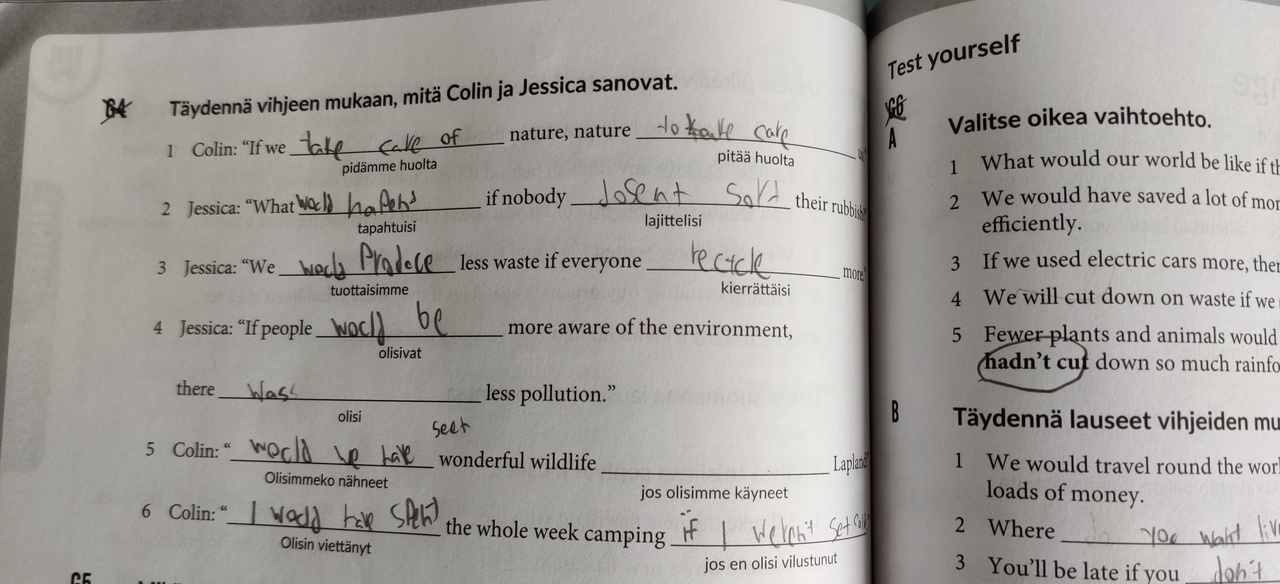 64 Täydennä vihjeen mukaan, mitä Colin ja Jessica sanovat.
1 Colin: "If we take care of nature, nature to take care
pidämme huolta pitää huolta
2 Jessica: "What would happens if nobody dosent sort their rubbish
tapahtuisi lajittelisi
3 Jessica: "We would produce less waste if everyone recycle more
tuottaisimme kierrättäisi
4 Jessica: "If people would be more aware of the environment,
olisivat
there wass less pollution."
olisi
seet
5 Colin: " would we have wonderful wildlife Lapland
Olisimmeko nähneet jos olisimme käyneet
6 Colin: " I would have spend the whole week camping if I weren't
Olisin viettänyt jos en olisi vilustunut
G5
Test yourself
A Valitse oikea vaihtoehto.
1 What would our world be like if
2 We would have saved a lot of
efficiently.
3 If we used electric cars more,
4 We will cut down on waste if we
5 Fewer plants and animals would
hadn't cut down so much
B Täydennä lauseet vihjeiden
1 We would travel round the
loads of money.
2 Where do you want
3 You'll be late if you don't